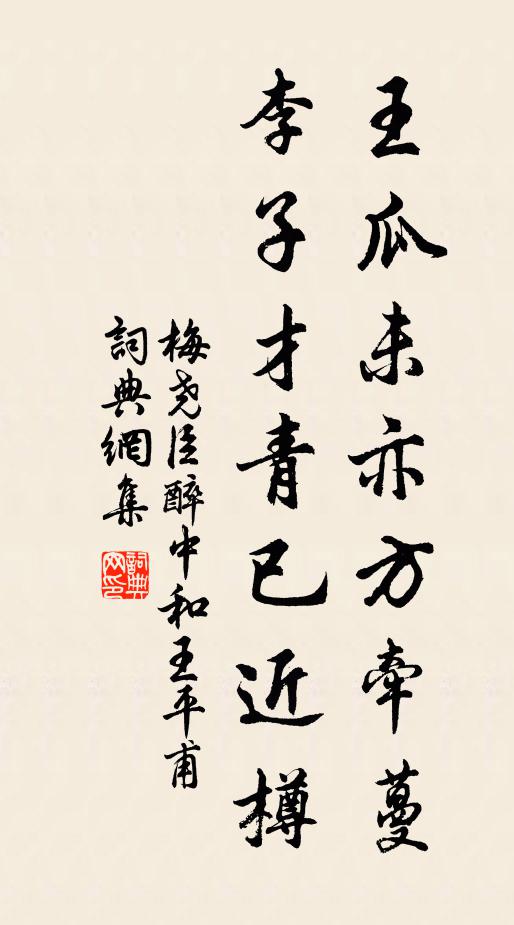 王瓜未亦方牽蔓
李子才青已近樽
梅尧臣醉中和王平甫
詞典網集
詞典网印